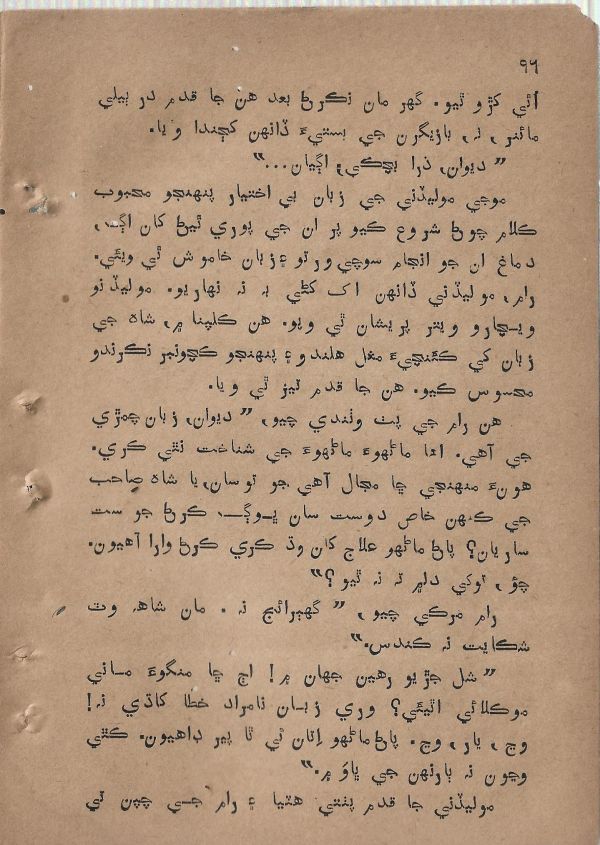 ٩٦
اُٿي کڙو ٿيو. گهر مان نڪرڻ بعد هن جا قدم در بيلي
مائنر، نہ، بازيگرن جي بستيءَ ڏانهن کڄندا ويا.
”ديوان، ذرا بچڪي، اڳيان...“
موجي موليڏني جي زبان بي اختيار پنهنجو محبوب
ڪلام چوڻ شروع ڪيو پر ان جي پوري ٿيڻ کان اڳ،
دماغ ان جو انجام سوچي ورتو ۽ زبان خاموش ٿي ويئي.
رام، موليڏني ڏانهن اک کڻي بہ نہ نهاريو. موليڏنو
ويچارو ويتر پريشان ٿي ويو. هن ڪلپنا ۾، شاھ جي
زبان کي ڪئنچيءَ مثل هلندو ۽ پنهنجو ڪچونبر نڪرندو
محسوس ڪيو. هن جا قدم تيز ٿي ويا.
هن رام جي پٺ وٺندي چيو، ”ديوان، زبان چمڙي
جي آهي. اھا ماڻهوءَ ماڻهوءَ جي شناخت نٿي ڪري.
هونءَ منهنجي ڇا مجال آهي جو توسان، يا شاھ صاحب
جي ڪنهن خاص دوست سان ڀوڳ ڪرڻ جو ست
ساريان؟ پاڻ ماڻهو علاج کان وڌ ڪري ڪرڻ وارا آهيون.
چؤ، توکي دلر تہ نہ ٿيو؟“
رام مرڪي چيو، ”گهٻرائج نہ. مان شاھہ وٽ
شڪايت نہ ڪندس.“
”شل جڙيو رهين جهان ۾! اڄ ڇا منگوءَ ماني
موڪلائي اٿيئي؟ وري زبان نامراد خطا کاڌي نہ!
وڃ، يار، وڃ. پاڻ ماڻهو اِتان ئي ٿا پير ڊاهيون. ڪٿي
وڃون نہ ٻارنهن جي ڀاوَ ۾.“
موليڏني جا قدم پٺتي هٽيا ۽ رام جي چپن تي